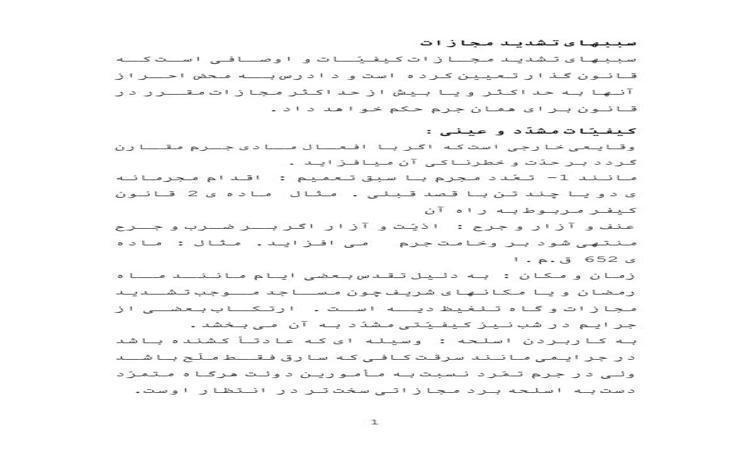 سببهای تشدید مجازات
سببهای تشدید مجازات کیفیّات و اوصافی است که
قانون گذار تعیین کرده است و دادرس به محض احراز
آنها به حداکثر و یا بیش از حداکثر مجازات مقرر در
قانون برای همان جرم حکم خواهد داد.
کیفیّات مشدّد و عینی :
وقایعی خارجی است که اگر با افعال مادی جرم مقارن
گردد بر حدّت و خطرناکی آن میافزاید .
مانند 1- تعّدد مجرم با سبق تعمیم : اقدام مجرمانه
ی دو یا چند تن با قصد قبلی . مثال ماده ی 2 قانون
کیفر مربوط به راه آن
عنف و آزار و جرح : اذیّت و آزار اگر بر ضرب و جرح
منتهی شود بر وخامت جرم می افزاید. مثال : ماده
ی 652 ق.م.ا
زمان و مکان : به دلیل تقدس بعضی ایام مانند ماه
رمضان و یا مکانهای شریف چون مساجد موجب تشدید
مجازات و گاه تلغیظ دیه است . ارتکاب بعضی از
جرایم در شب نیز کیفیّتی مشدّد به آن می بخشد.
به کاربردن اسلحه : وسیله ای که عادتاً کشنده باشد
در جرایمی مانند سرقت کافی که سارق فقط ملّح باشد
ولی در جرم تمّرد نسبت به مأمورین دولت هرگاه متمرّد
دست به اسلحه برد مجازاتی سخت تر در انتظار اوست.
1